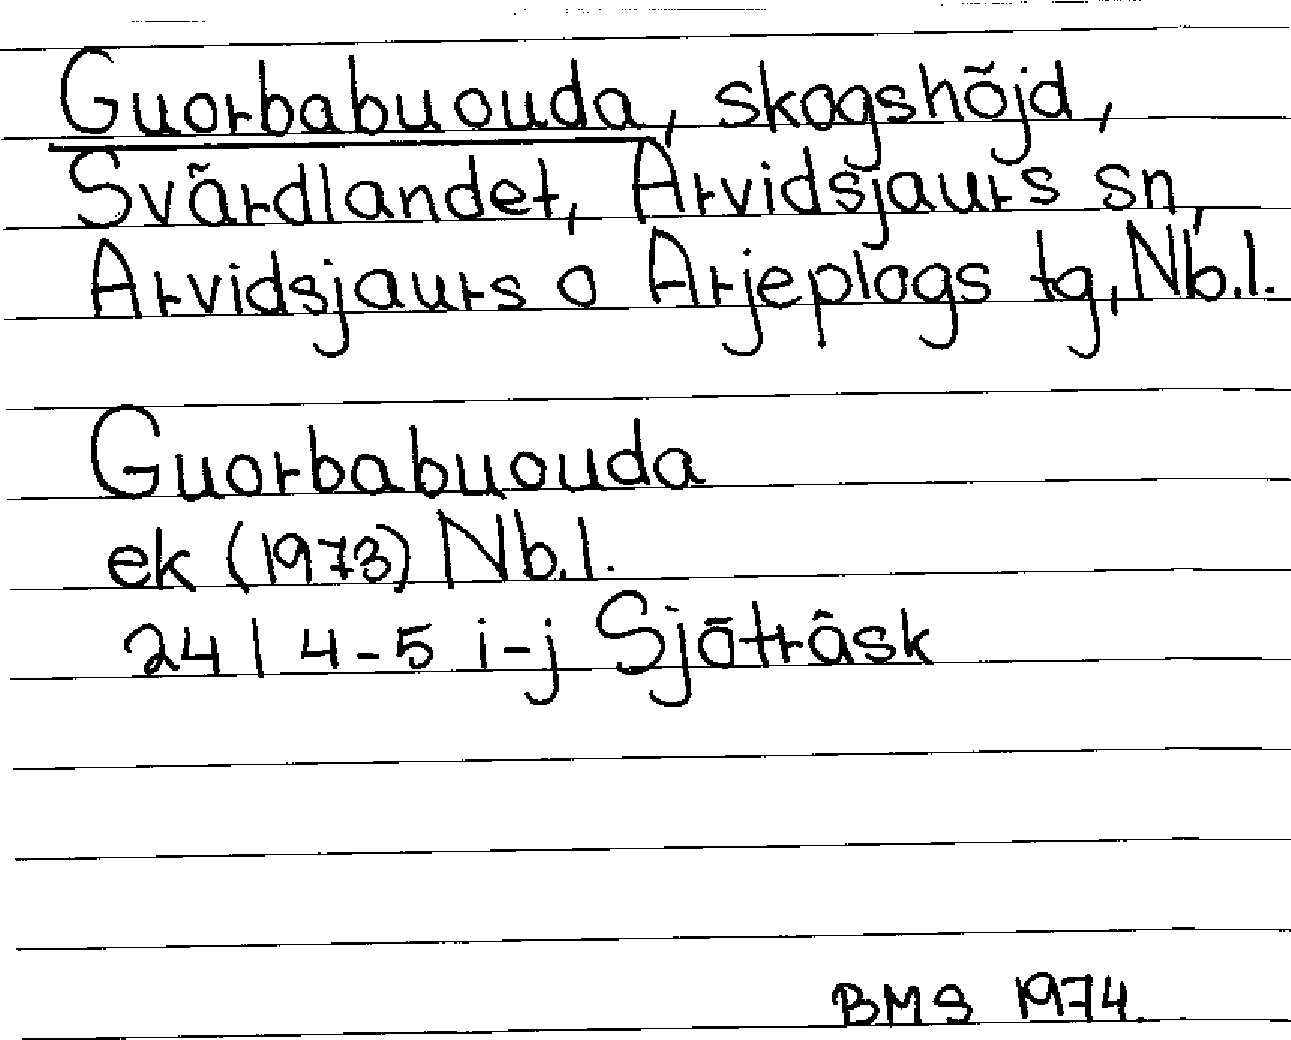 Guorbabuouda, skogshöjd,
Svärdlandet, Arvidsjaurs sn,
Arvidsjaurs o Arjeplogs tg, Nb.l.
Guorbabuouda
ek (1973) Nb.l.
24 I 4-5 i-j Sjöträsk
BMS 1974